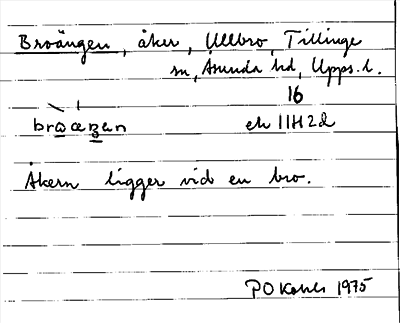 Broängen, åker, Ullbro, Tillinge
sn, Åsunda hd, Upps. l.
16
ek 11H2d
Åkern ligger vid en bro.
1975